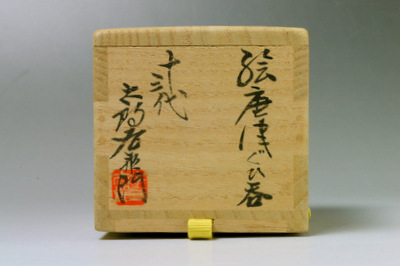 絵唐津ぐひ呑
十三代
太郎右衛門